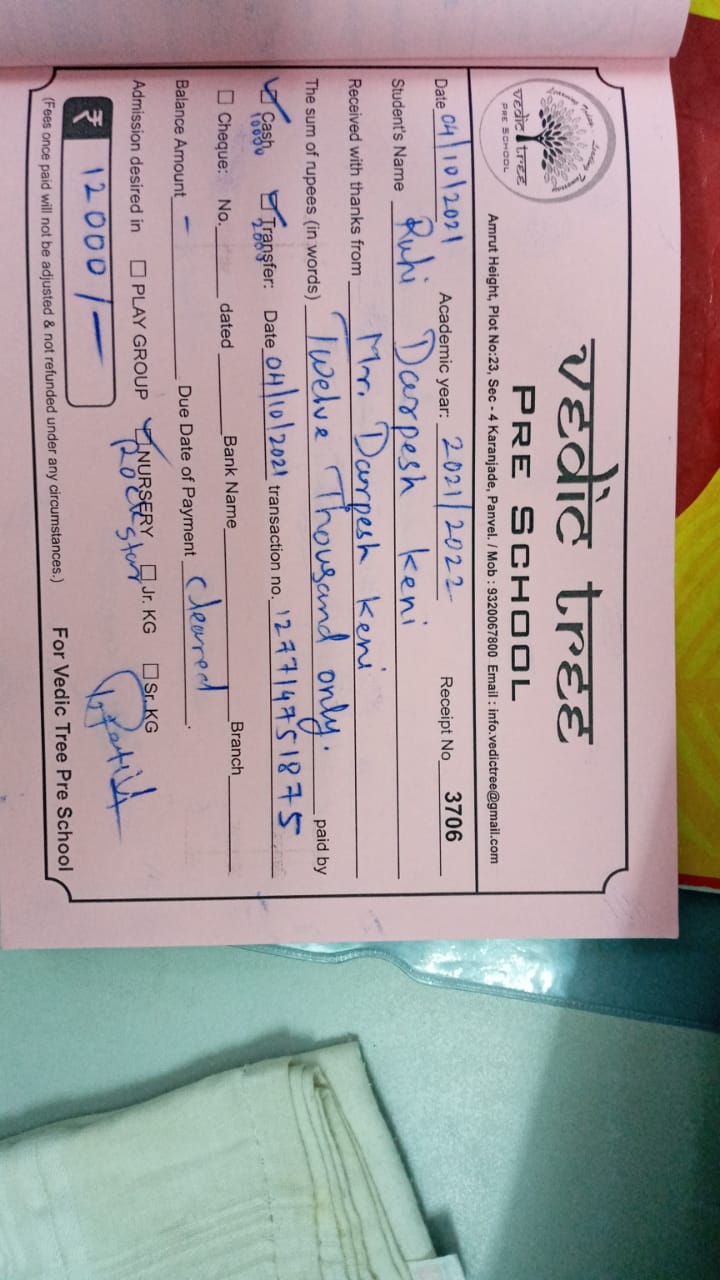 vedic tree
PRE SCHOOL
vedic tree
PRE SCHOOL
Amrut Height, Plot No:23, Sec - 4 Karanjade, Panvel. / Mob : 9320067800 Email : info.vedictree@gmail.com
Date 04/10/2021 Academic year: 2021/2022 Receipt No 3706
Student's Name Ruhi Darpesh keni
Received with thanks from Mr. Darpesh keni
The sum of rupees (in words) Twelve Thousand only. paid by
Cash Transfer: Date 04/10/2021 transaction no. 127714751875
10000 2000
Cheque: No. dated Bank Name Branch
Balance Amount - Due Date of Payment cleared.
Admission desired in PLAY GROUP NURSERY Jr. KG Sr. KG
Rockstar
₹ 12000/-
(Fees once paid will not be adjusted & not refunded under any circumstances.) For Vedic Tree Pre School